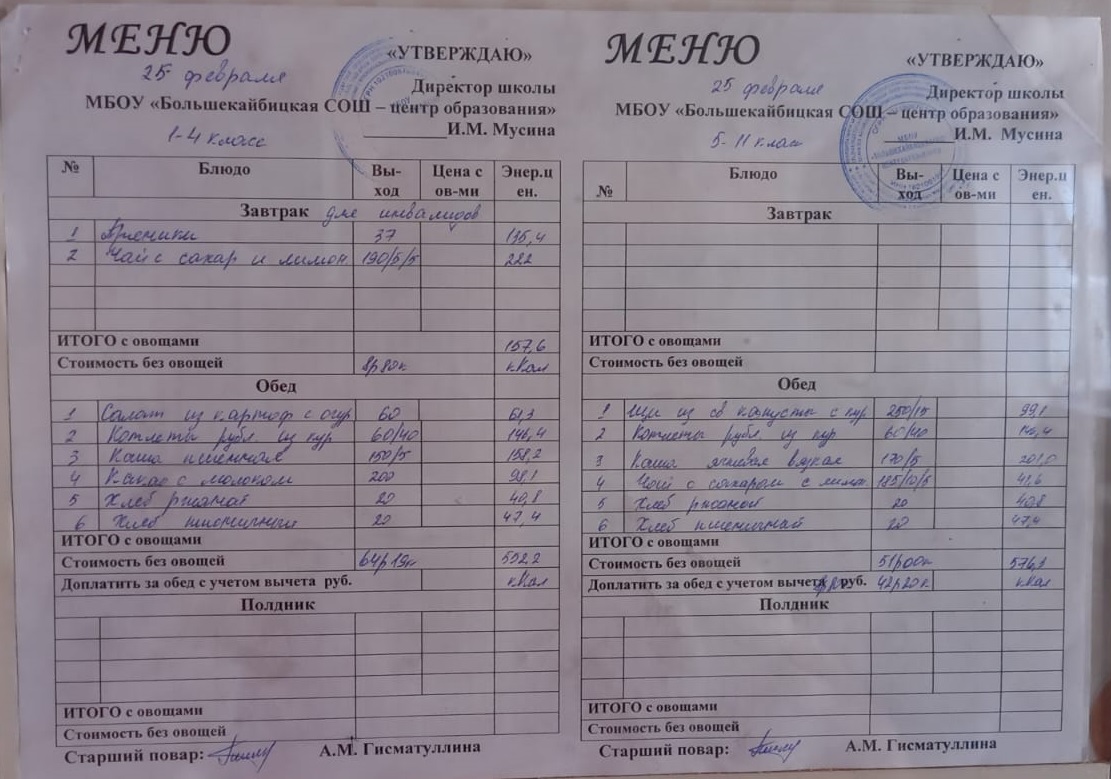 МЕНЮ
25 февраля
«УТВЕРЖДАЮ»
Директор школы
МБОУ «Большекайбицкая СОШ – центр образования»
И.М. Мусина
1-4 класс
№ Блюдо Вы-ход Цена с ов-ми Энер.ц ен.
Завтрак для инвалидов
1 Пряники 37 135,4
2 Чай с сахар и лимон 190/5/5 222
ИТОГО с овощами 157,6
Стоимость без овощей 8р80к кКал
Обед
1 Салат из картоф с огур 60 61,3
2 Котлеты рубл. из кур 60/40 146,4
3 Каша пшеничная 150/5 158,2
4 Какао с молоком 200 98,1
5 Хлеб ржаной 20 40,8
6 Хлеб пшеничный 20 47,4
ИТОГО с овощами
Стоимость без овощей 64р19к 552,2
Доплатить за обед с учетом вычета руб. кКал
Полдник
ИТОГО с овощами
Стоимость без овощей
Старший повар: А.М. Гисматуллина
МЕНЮ
25 февраля
«УТВЕРЖДАЮ»
Директор школы
МБОУ «Большекайбицкая СОШ – центр образования»
И.М. Мусина
5-11 класс
№ Блюдо Вы-ход Цена с ов-ми Энер.ц ен.
Завтрак
ИТОГО с овощами
Стоимость без овощей
Обед
1 Щи из св капусты с кур 250/15 99,1
2 Котлеты рубл из кур 60/40 146,4
3 Каша ячневая вязкая 170/5 201,0
4 Чай с сахаром с лимон 185/10/5 41,6
5 Хлеб ржаной 20 40,8
6 Хлеб пшеничный 20 47,4
ИТОГО с овощами
Стоимость без овощей 51р00к 576,3
Доплатить за обед с учетом вычета руб. 42р20к кКал
Полдник
ИТОГО с овощами
Стоимость без овощей
Старший повар: А.М. Гисматуллина